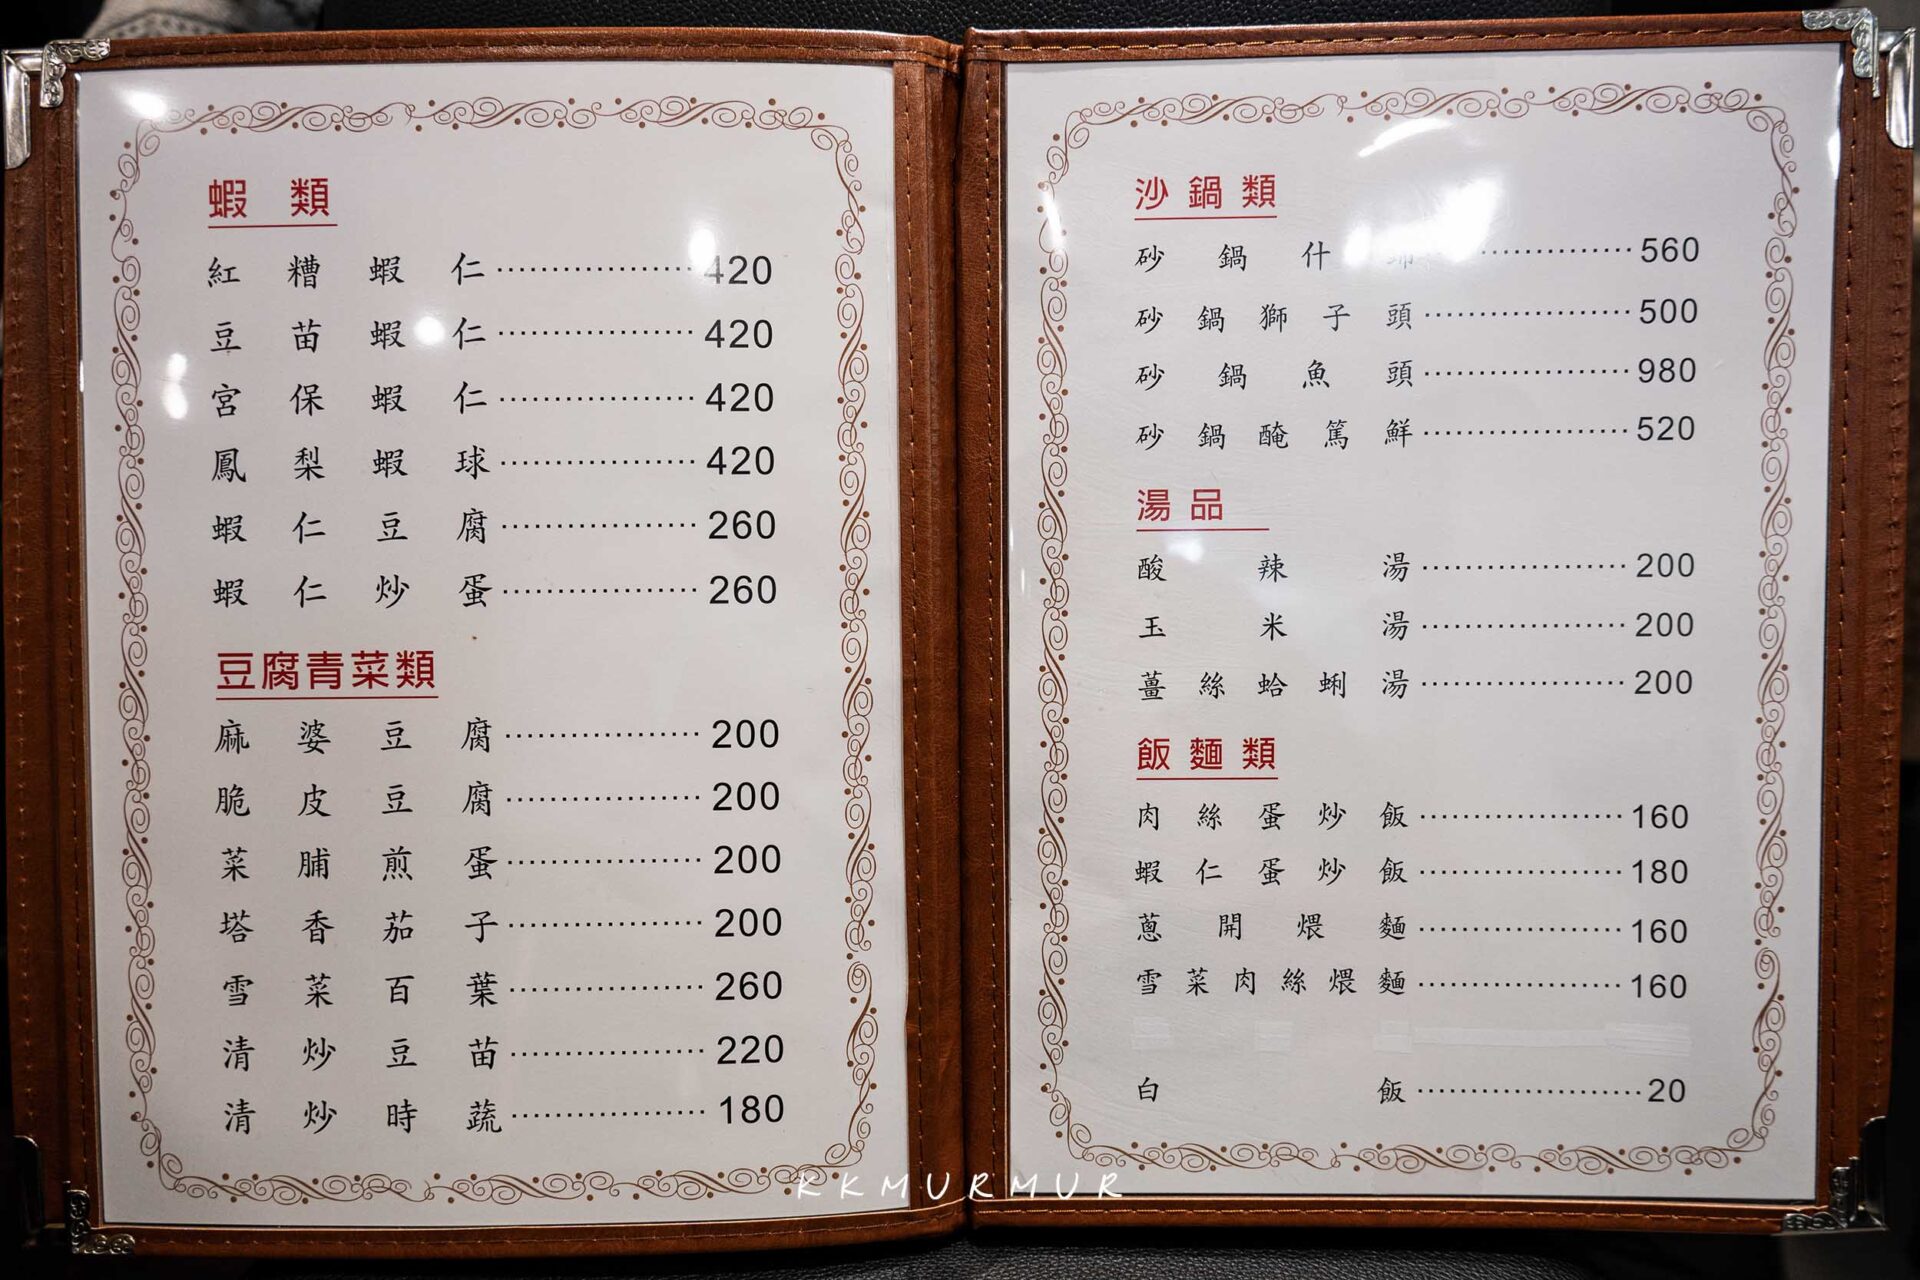 蝦類
紅糟蝦仁 420
豆苗蝦仁 420
宮保蝦仁 420
鳳梨蝦球 420
蝦仁豆腐 260
蝦仁炒蛋 260
豆腐青菜類
麻婆豆腐 200
脆皮豆腐 200
菜脯煎蛋 200
塔香茄子 200
雪菜百葉 260
清炒豆苗 220
清炒時蔬 180
沙鍋類
砂鍋什 560
砂鍋獅子頭 500
砂鍋魚頭 980
砂鍋醃篤鮮 520
湯品
酸辣湯 200
玉米湯 200
薑絲蛤蜊湯 200
飯麵類
肉絲蛋炒飯 160
蝦仁蛋炒飯 180
蔥開煨麵 160
雪菜肉絲煨麵 160
白飯 20
RKMURMUR